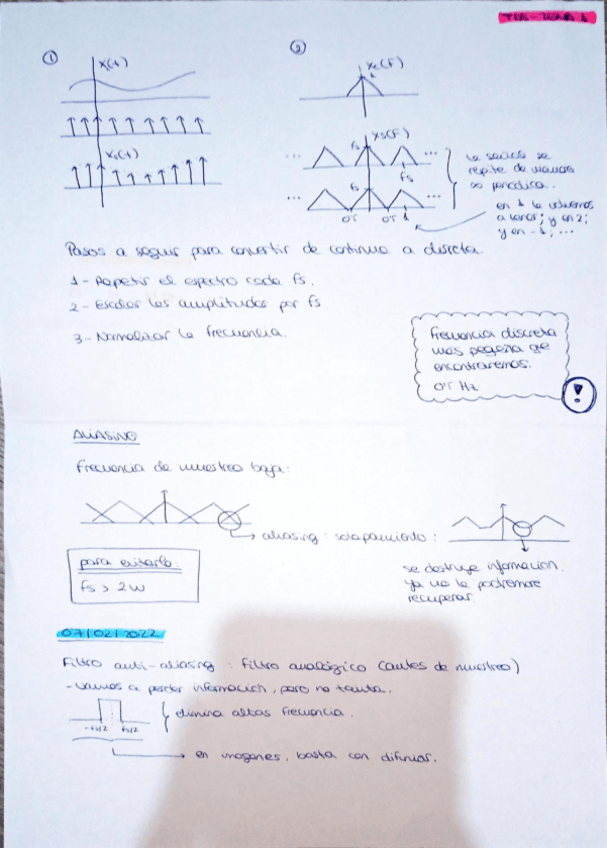 TEMA 1
①
x(t)
xs(t)
②
xc(F)
1
xs(F)
fs
...
...
fs
fs
...
...
0'5
0'5
1
la señal se
repite de manera
∞ periódica.
en 1 la volvemos
a tener; y en 2;
y en -1; ...
Pasos a seguir para convertir de continua a discreta.
1 - Repetir el espectro cada fs.
2 - Escalar las amplitudes por fs.
3 - Normalizar la frecuencia.
frecuencia discreta
más pequeña que
encontraremos:
0'5 Hz
!
ALIASING
Frecuencia de muestreo baja:
aliasing: solapamiento:
para evitarlo:
fs > 2W
se destruye información.
ya no la podremos
recuperar.
07/02/2022
Filtro anti-aliasing: filtro analógico (antes de muestreo)
- vamos a perder información, pero no tanta.
-fs/2
fs/2
elimina altas frecuencia.
en imagenes, basta con difuminar.